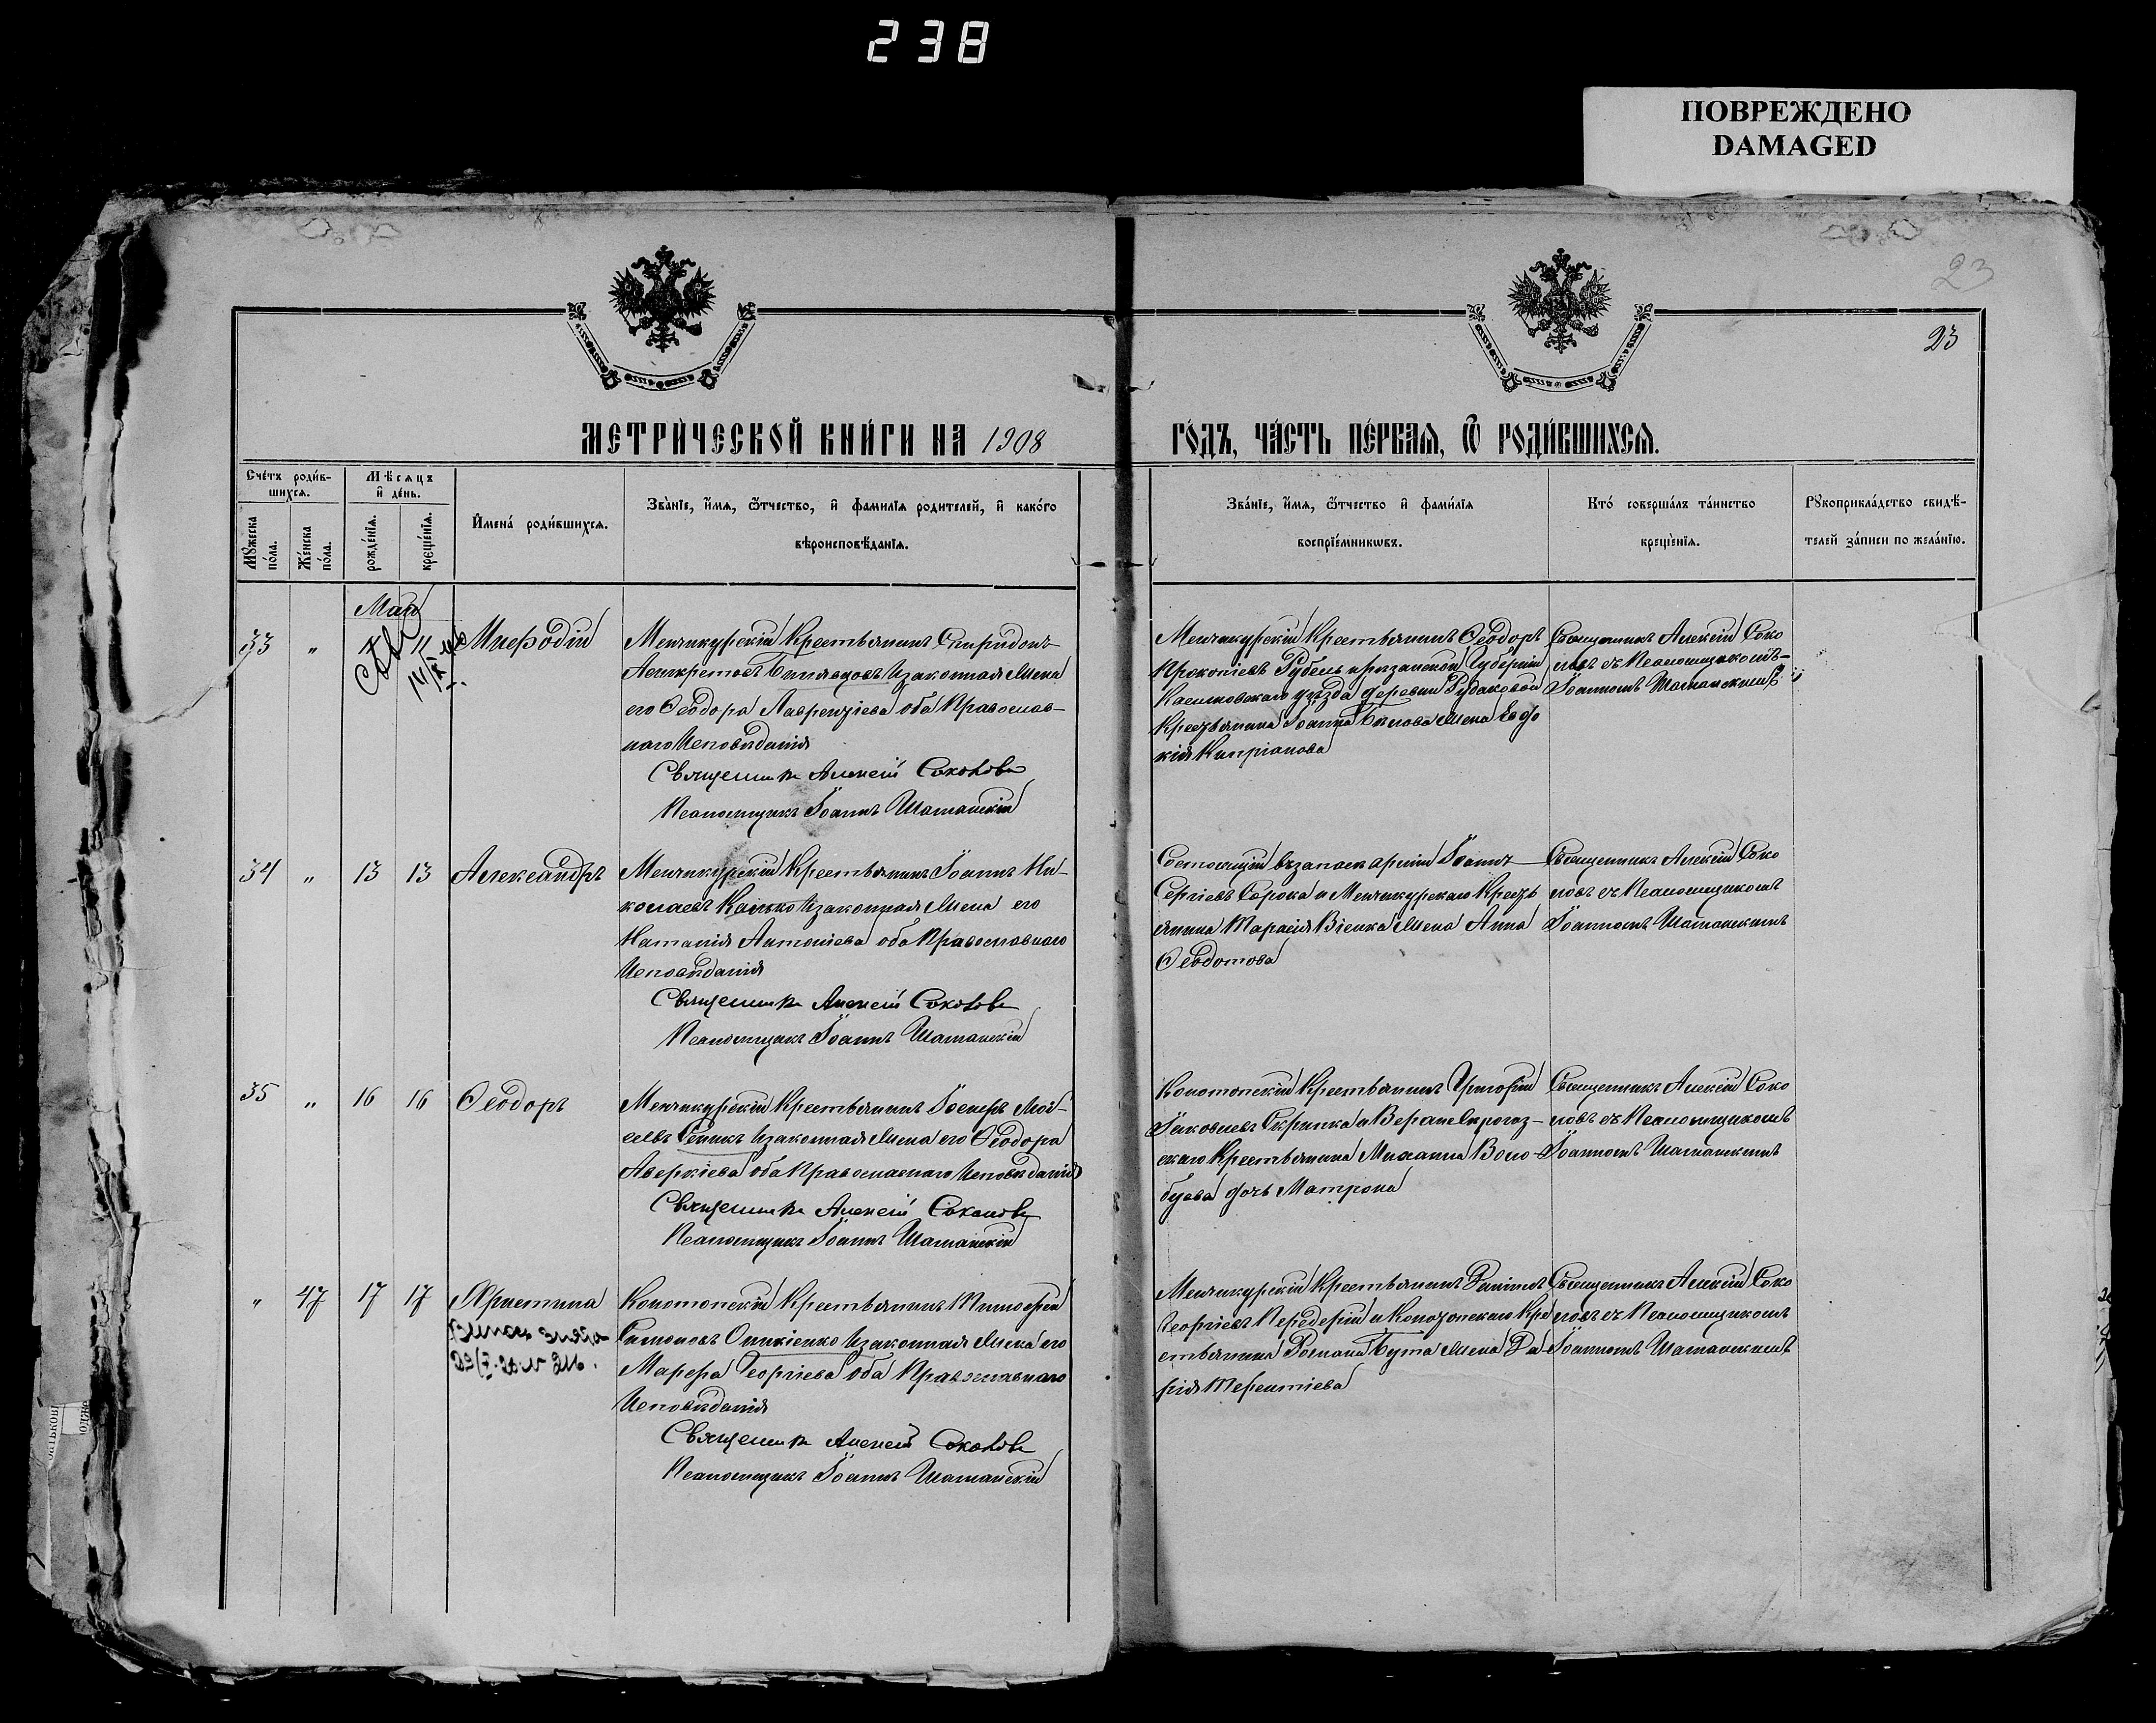 238
ПОВРЕЖДЕНО
DAMAGED
23
23
МЕТРИ́ЧЕСКОЙ КНИ́ГИ НА 1908
ГО́ДЪ, ЧА́СТЬ ПЕ́РВАѦ, Ѿ РОДИ́ВШИХСѦ.
Сче́тъ роди́в-
шихсѧ.
Мѣсѧцъ
и҆ де́нь.
Мꙋжеска
по́ла.
Же́нска
по́ла.
рожде́нїѧ.
креще́нїѧ.
И҆мена́ роди́вшихсѧ.
Зва́нїе, и҆́мѧ, ѻ҆́тчество, и҆ фами́лїѧ роди́телей, и҆ како́гѡ
вѣроисповѣ́данїѧ.
Зва́нїе, и҆́мѧ, ѻ҆́тчество и҆ фами́лїѧ
воспрїе́мникѡвъ.
Кто́ соверша́лъ та́инство
креще́нїѧ.
Рꙋкоприкла́дство свидѣ́-
телей за́писи по жела́нїю.
Май
33 " 11 Меѳодій
Менчикурскій Крестьянинъ Спиридонъ
Асинкритовъ и законная жена
его Ѳеодора Лаврентіева оба Православ-
наго Исповѣданія
Священникъ Алексій Соколовъ
Псаломщикъ Іоаннъ Шаманскій
Менчикурскій Крестьянинъ Ѳеодоръ
Прокопіевъ Рубель и рязанской Губерніи
Касимовскаго уѣзда деревни Рудаковой
Крестьянина Іоанна Бѣлова жена Евдо
кія Кипріанова
Священникъ Алексій Соко
ловъ съ Псаломщикомъ
Іоанномъ Шаманскимъ
34 " 13 13 Александръ
Менчикурскій Крестьянинъ Іоаннъ Ни-
колаевъ Калько и законная жена его
Наталія Антоніева оба Православнаго
Исповѣданія
Священникъ Алексій Соколовъ
Псаломщикъ Іоаннъ Шаманскій
Состоящій въ запасѣ арміи Іоаннъ
Сергіевъ Сорока и Менчикурскаго Кресть
янина Тарасія Віенка жена Анна
Ѳеодотова
Священникъ Алексій Соко
ловъ съ Псаломщикомъ
Іоанномъ Шаманскимъ
35 " 16 16 Ѳеодоръ
Менчикурскій Крестьянинъ Іосифъ Мои-
сеевъ и законная жена его Ѳеодора
Аверкіева оба Православнаго Исповѣданія
Священникъ Алексій Соколовъ
Псаломщикъ Іоаннъ Шаманскій
Конотопскій Крестьянинъ Григорій
Іаковлевъ Скрипка и Верхне Сирогоз-
скаго Крестьянина Михаила Воло-
буева дочь Матрона
Священникъ Алексій Соко
ловъ съ Псаломщикомъ
Іоанномъ Шаманскимъ
" 47 17 17 Христина
Конотопскій Крестьянинъ Тимофей
Симоновъ Опикіенко и законная жена его
Марѳа Георгіева оба Православнаго
Исповѣданія
Священникъ Алексій Соколовъ
Псаломщикъ Іоаннъ Шаманскій
Менчикурскій Крестьянинъ Даніилъ
Георгіевъ Передерій и Конотопскаго Кре
стьянина Романа Бута жена Да
рія Терентіева
Священникъ Алексій Соко
ловъ съ Псаломщикомъ
Іоанномъ Шаманскимъ